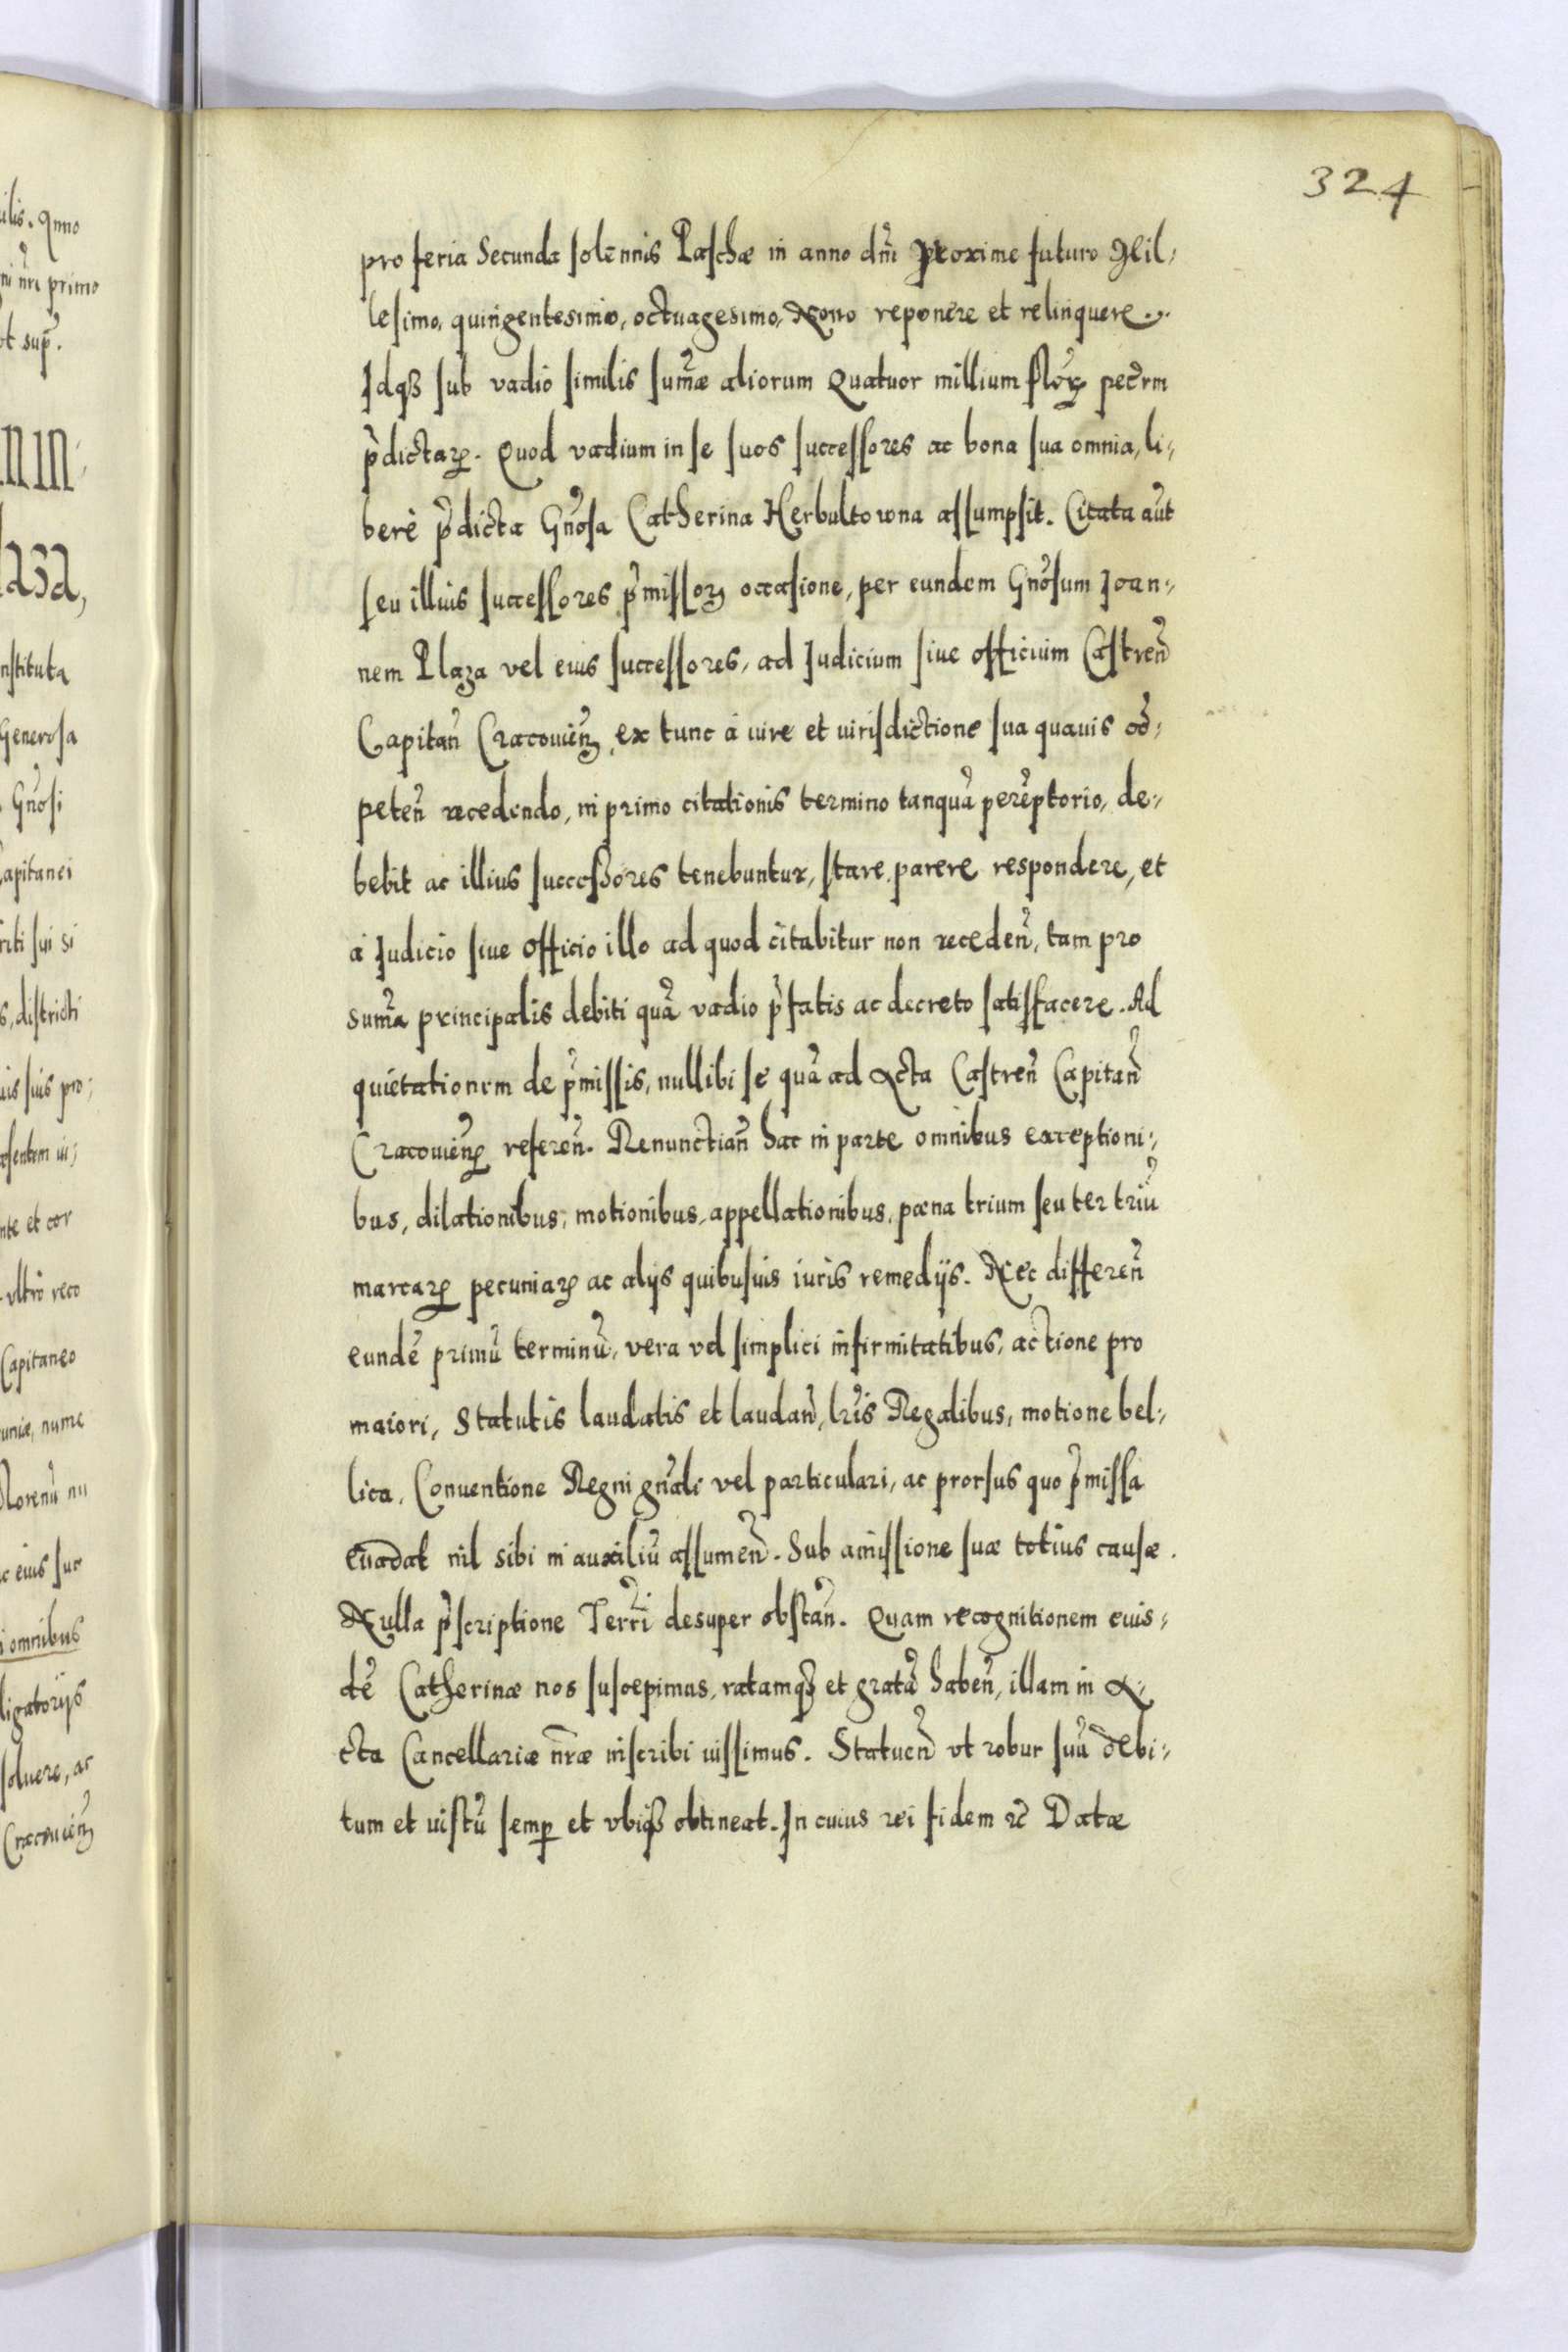 324
pro feria Secunda solēnnis Paschæ in anno dn̄i proxime futuro Mil-
lesimo, quingentesimo, octuagesimo, Nono reponere et relinquere.
Idqȝ sub vadio similis sum̄æ aliorum Quatuor millium flor̄ pec̄rm
p̄dictarꝝ. Quod vadium in se suos successores ac bona sua omnia, li-
berè p̄dicta Gn̄osa Catherina Herbultowna assumpsit. Citata aūt
seu illius successores p̄missorꝝ occasione, per eundem Gn̄osum Joan-
nem Plaza vel eius successores, ad Iudicium siue officium Castren̄
Capitan̄ Cracouien̄, ex tunc à iure et iurisdictione sua quauis cō-
peten̄ recedendo, in primo citationis termino tanquā perēptorio, de-
bebit ac illius successores tenebuntur, stare, parere respondere, et
à Iudicio siue Officio illo ad quod citabitur non receden̄, tam pro
sum̄a principalis debiti quā vadio p̄fatis ac decreto satisfacere. Ad
quietationem de p̄missis, nullibi se quā ad Acta Castren̄ Capitan̄
Cracouien̄ referen̄. Renunctian̄ hac in parte omnibus exceptioni-
bus, dilationibus, motionibus, appellationibus, pœna trium seu ter triū
marcarꝝ pecuniarꝝ ac alijs quibusuis iuris remedijs. Nec differen̄
eundē primū terminū, vera vel simplici infirmitatibus, actione pro
maiori, Statutis laudatis et laudan̄, lr̄is Regalibus, motione bel-
lica, Conuentione Regni gn̄ali vel particulari, ac prorsus quo p̄missa
euadat nil sibi in auxiliū assumen̄. Sub amissione suæ totius causæ.
Nulla p̄scriptione Terr̄i desuper obstan̄. Quam recognitionem eius-
dē Catherinæ nos suscepimus, ratamqȝ et gratā haben̄, illam in A-
cta Cancellariæ nr̄æ inscribi iussimus. Statuen̄ vt robur suū debi-
tum et iustū semꝑ et vbiqȝ obtineat. In cuius rei fidem ꝛc̄ Datæ